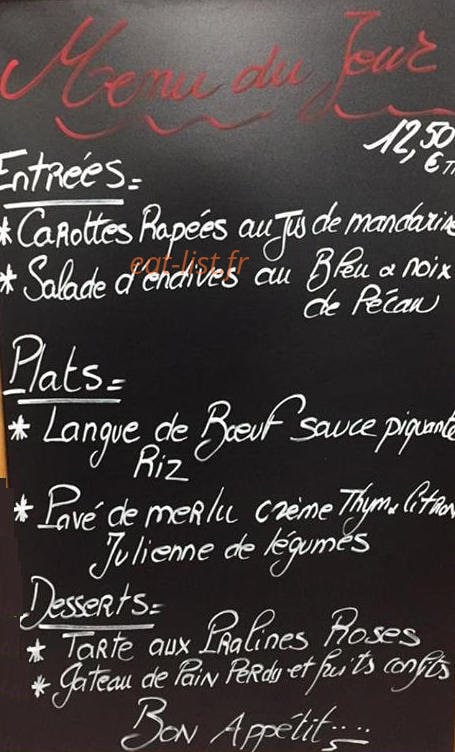 Menu du Jour
12,50
€ T
Entrées=
* Carottes Rapées au Jus de mandarine
eat-list.fr
* Salade d'endives au Bleu & noix
de Pécan
Plats=
* Langue de Bœuf sauce piquante
Riz
* Pavé de merlu crème Thym & Citron
Julienne de légumes
Desserts=
* Tarte aux Pralines Roses
* Gateau de Pain Perdu et fruits confits
Bon Appétit....